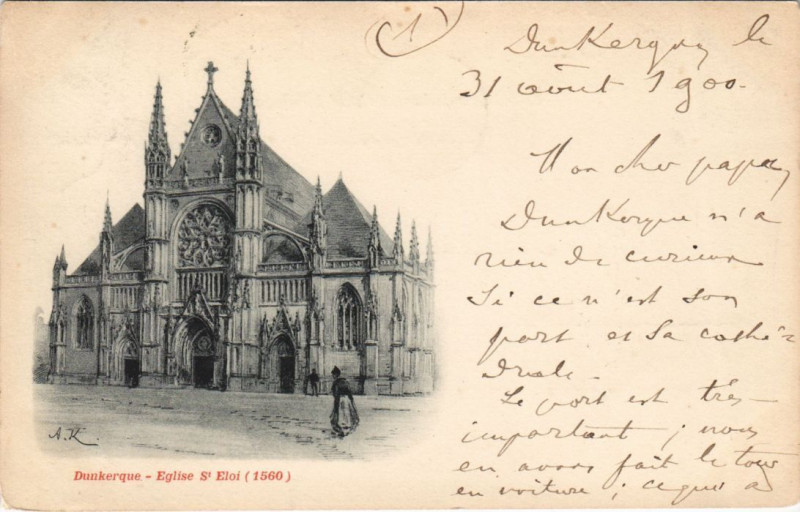 1
Dunkerque le
31 août 1900.
Mon cher papa,
Dunkerque n'a
rien de curieux
si ce n'est son
port et sa cathé-
drale.
Le port est très
important ; nous
en avons fait le tour
en voiture ; ce qui a
A.K.
Dunkerque - Eglise St Eloi (1560)